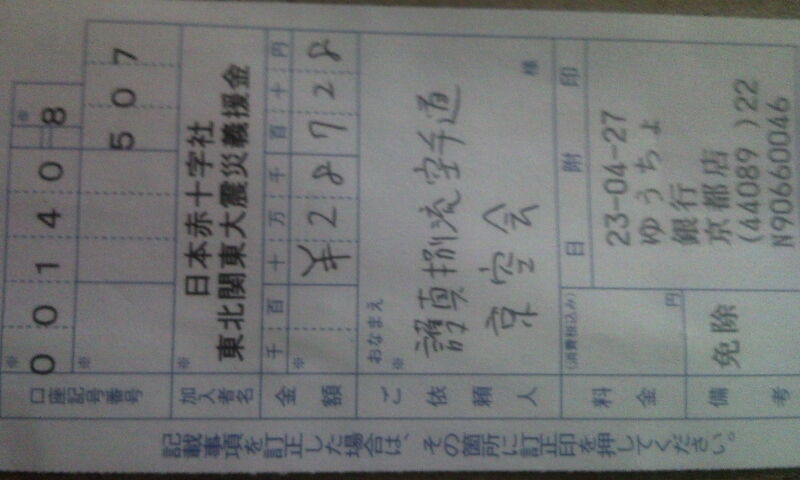 口座記号番号
※ 00140 ※ 8
※ 507
加入者名
※ 日本赤十字社
東北関東大震災義援金
金額
千百十万千百十円
※ ¥28728
ご依頼人
おなまえ
※ 誰真捌流空手道
京空会
様
料金
(消費税込み)
円
備考
免除
日附印
23-04-27
ゆうちょ
銀行
京都店
(44089 )22
N90660046
記載事項を訂正した場合は、その箇所に訂正印を押してください。